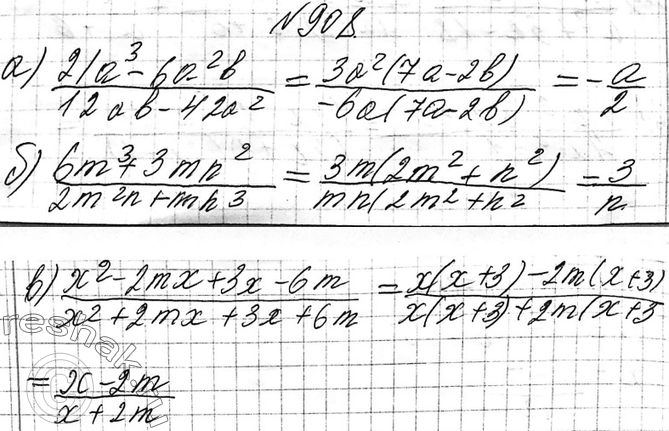 №908.
а) (21a³ - 6a²b)/(12ab - 42a²) = (3a²(7a - 2b))/(-6a(7a - 2b)) = -a/2
б) (6m³ + 3mn²)/(2m²n + mn³) = (3m(2m² + n²))/(mn(2m² + n²) = 3/n
в) (x² - 2mx + 3x - 6m)/(x² + 2mx + 3x + 6m) = (x(x + 3) - 2m(x + 3))/(x(x + 3) + 2m(x + 3
= (x - 2m)/(x + 2m)
reshak.ru